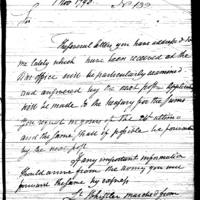 1 Nov 1793. No 133
Sir
The several letters you have addressed to
me lately which have been received at the
War office will be particularly examined
and answered by the next post. Application
will be made to the Treasury for the Sums
You request in yours of the 24th ultimo
and the same shall if possible be forwarded
by the next post.
If any important information
should arrive from the army you will
forward the same by express.
marched from